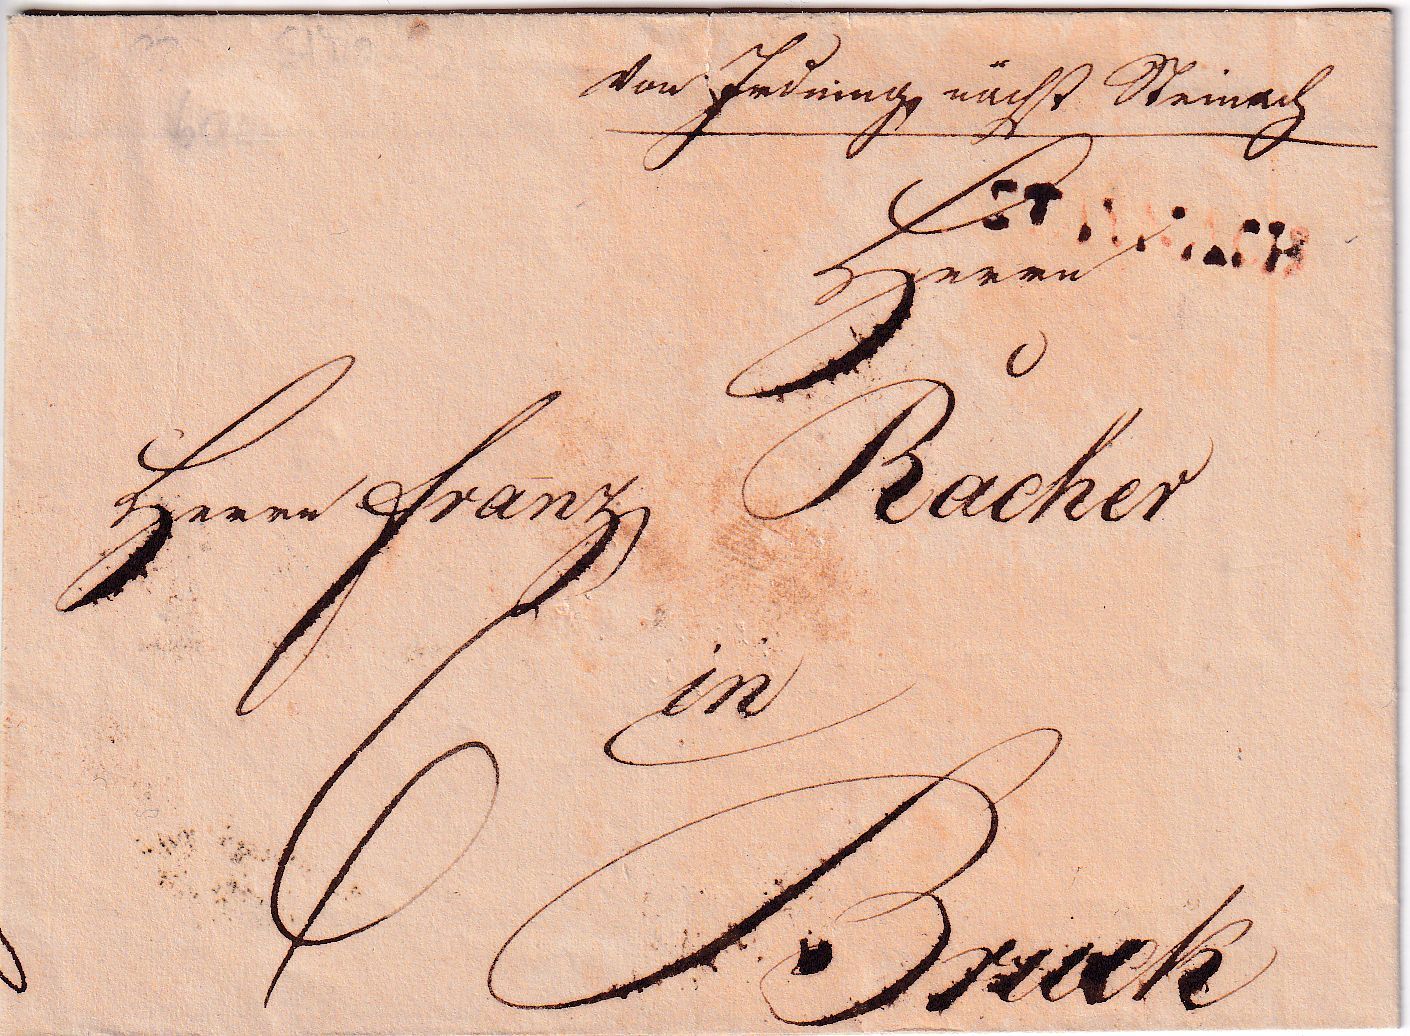 von Irdning nächst Steinach
STEINACH
Herrn
Herrn Franz Racher
in
Bruck